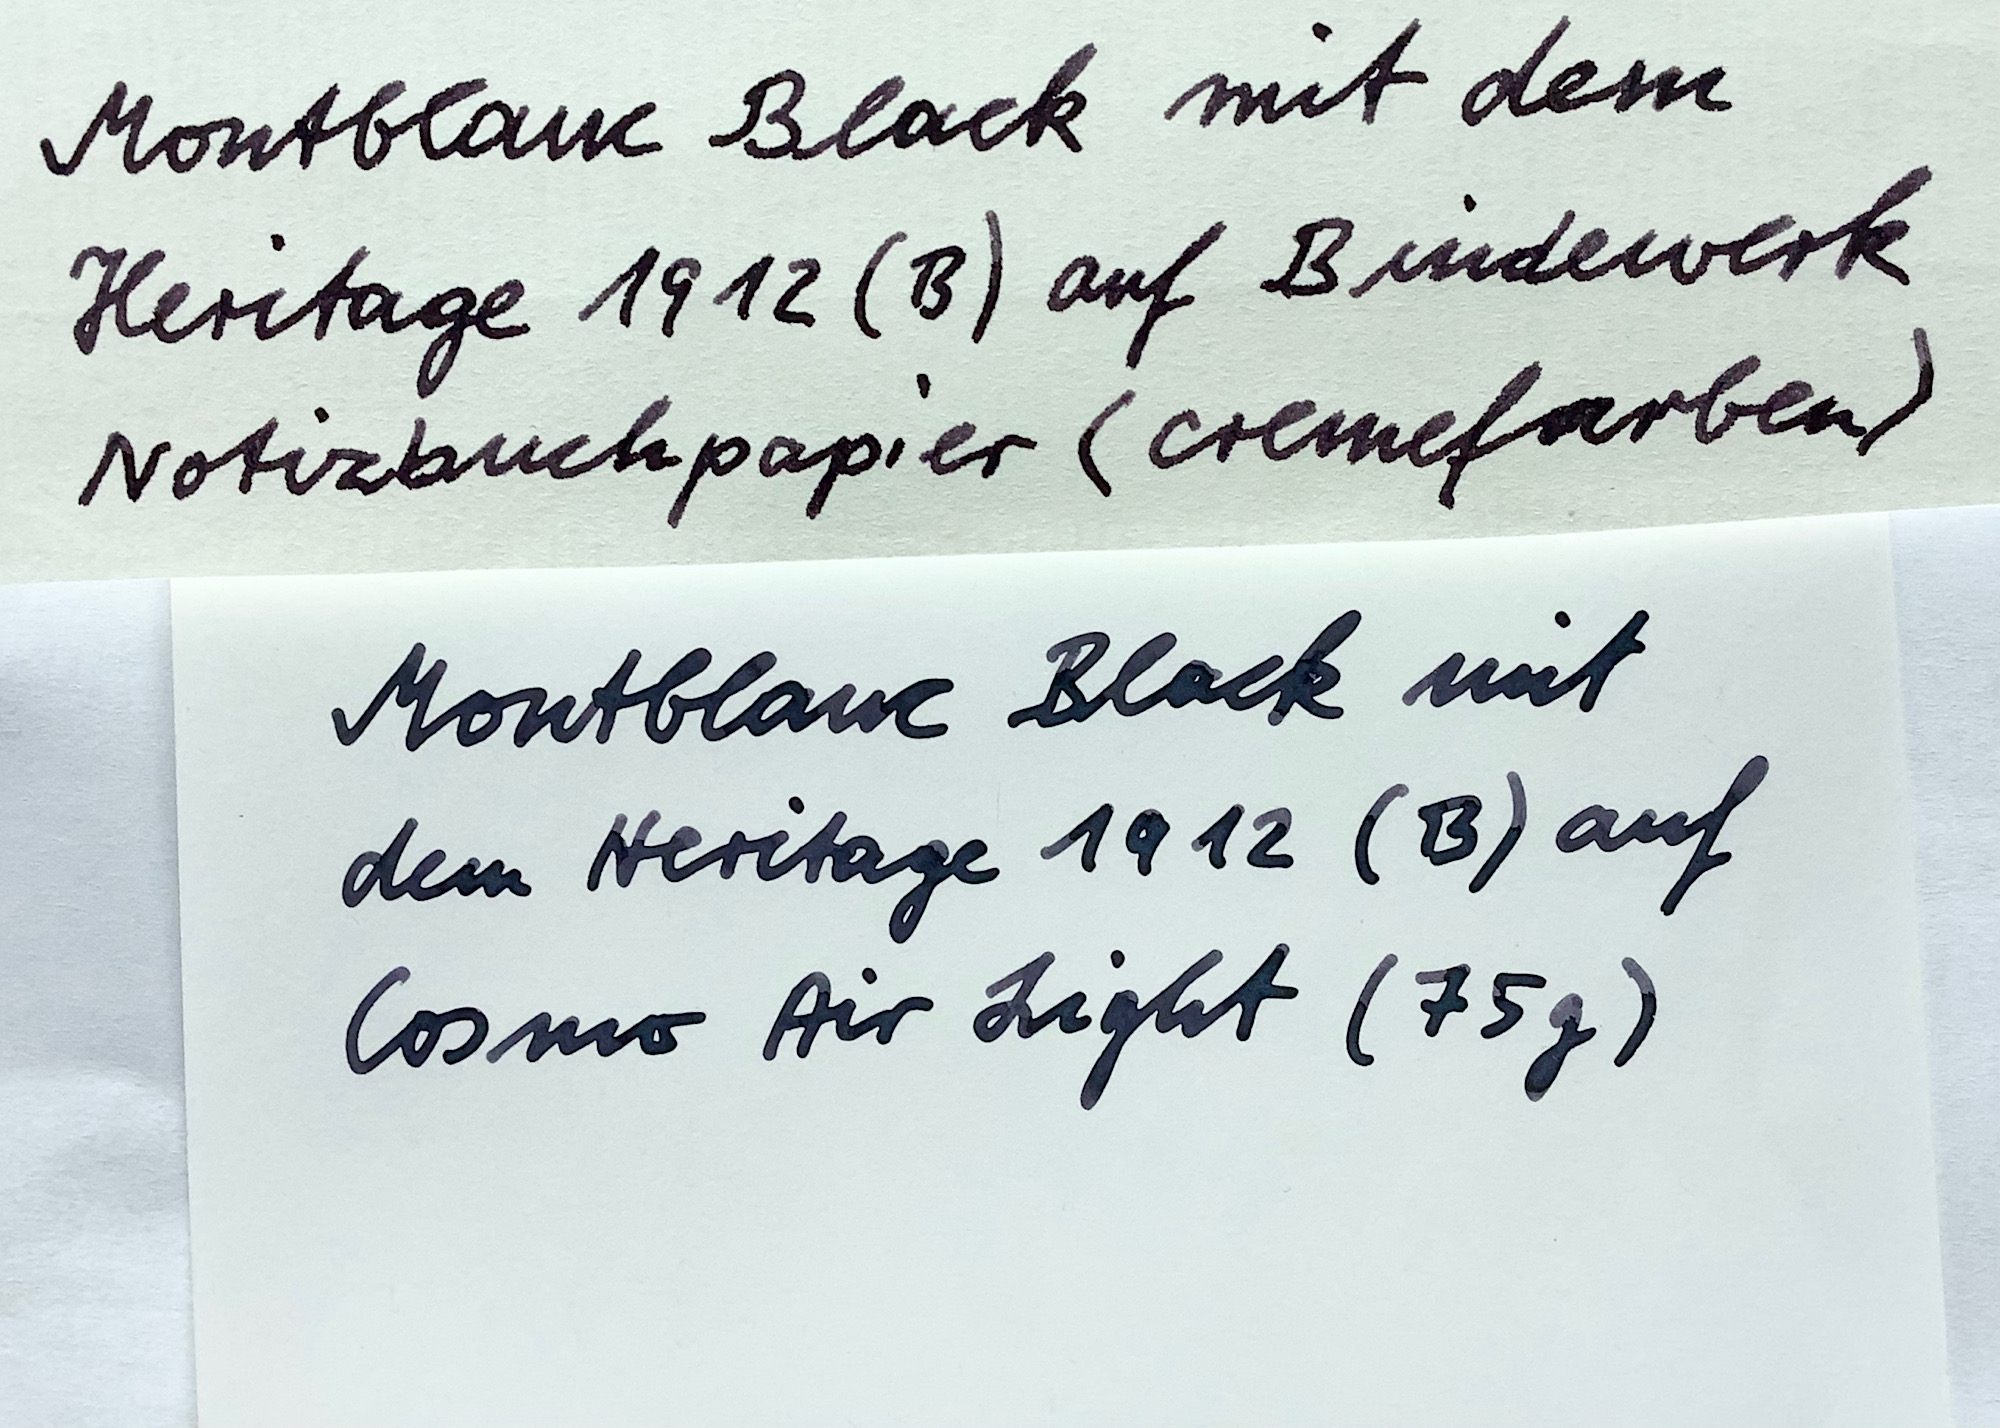 Montblanc Black mit dem
Heritage 1912 (B) auf Bindewerk
Notizbuchpapier (cremefarben)
Montblanc Black mit
dem Heritage 1912 (B) auf
Cosmo Air Light (75g)